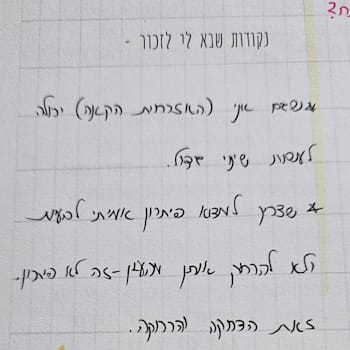 נקודות שבא לי לזכור -
* שגם אני (האזרחית הקטנה) יכולה
לעשות שינוי גדול.
* שצריך למצוא פיתרון אמיתי לבעיות
ולא להרחיק אותן מהעין - זה לא פיתרון.
זאת הדחקה והרחקה.